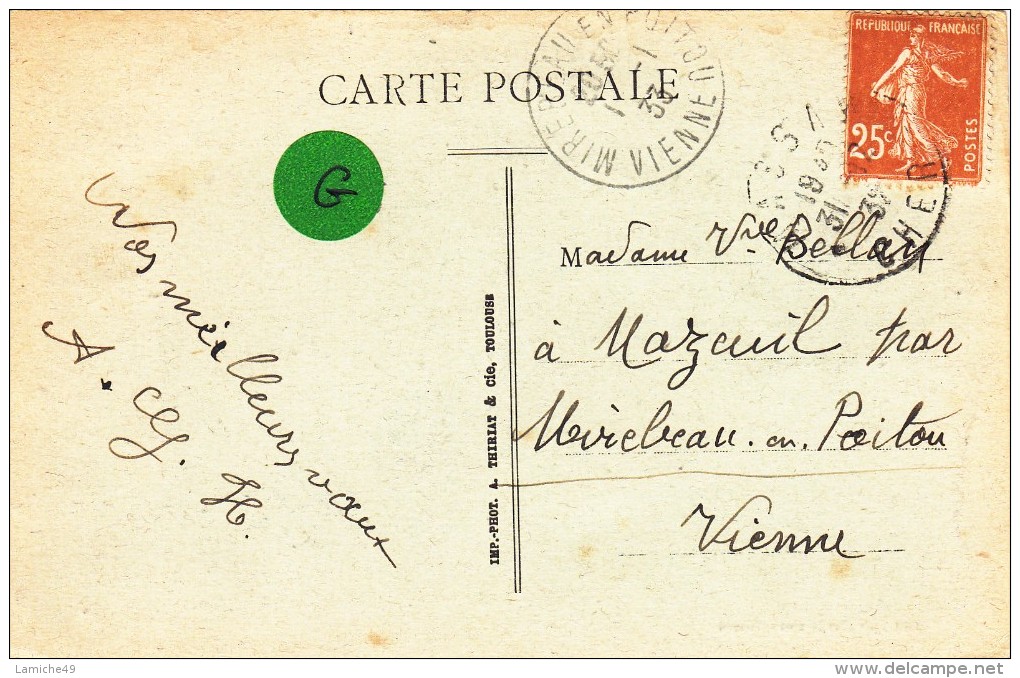 CARTE POSTALE
MIREBEAU EN POITOU
1 -1
33
VIENNE
REPUBLIQUE FRANÇAISE
25c
POSTES
31
CHER
G
Nos meilleurs vœux
A.
H.
Madame Vve Bellan
à Mazeuil par
Mirebeau. en. Poitou
Vienne
IMP.-PHOT. A. THIRIAT & cie, TOULOUSE
Lamiche49
delcampe.net